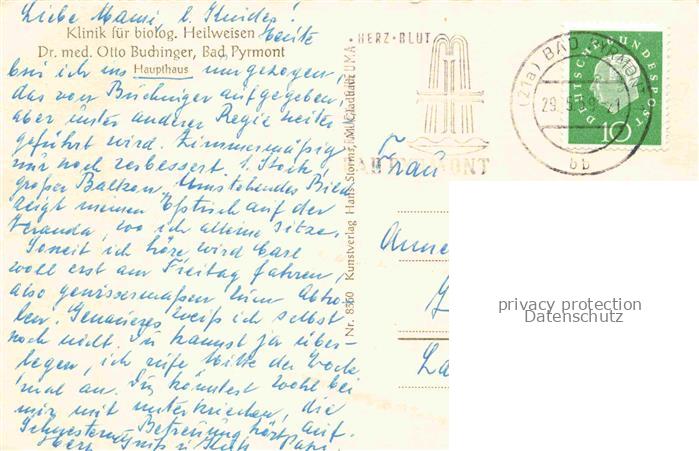 Liebe Mami, l. Kinder!
Klinik für biolog. Heilweisen Heute
Dr. med. Otto Buchinger, Bad Pyrmont
Haupthaus
bin ich ins umgezogen,
das von Buchinger aufgegeben,
aber unter anderer Regie weiter
geführt wird. Zimmermäßig
nur noch verbessert. 1. Stock,
großer Balkon, Umstehendes Bild
zeigt meinen Eßtisch auf der
Veranda, wo ich alleine sitze.
Soweit ich höre wird Carl
wohl erst am Freitag fahren,
also gewissermaßen zum Abho-
len. Genaueres weiß ich selbst
noch nicht. Du kannst ja über-
legen, ich rufe Mitte der Woche
'mal an. Du könntest wohl bei
mir mit unterkriechen, die
Schwestern-Betreuung hört auf.
Herzl.
Nr. 8360 Kunstverlag Hans Storms,
HERZ · BLUT
BAD PYRMONT
(21a) BAD PYRMONT
29.5.59
bb
DEUTSCHE BUNDESPOST
10
Frau
Anne
La
privacy protection
Datenschutz